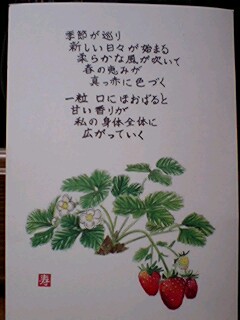 季節が巡り
新しい日々が始まる
柔らかな風が吹いて
春の恵みが
真っ赤に色づく
一粒 口にほおばると
甘い香りが
私の身体全体に
広がっていく
寿